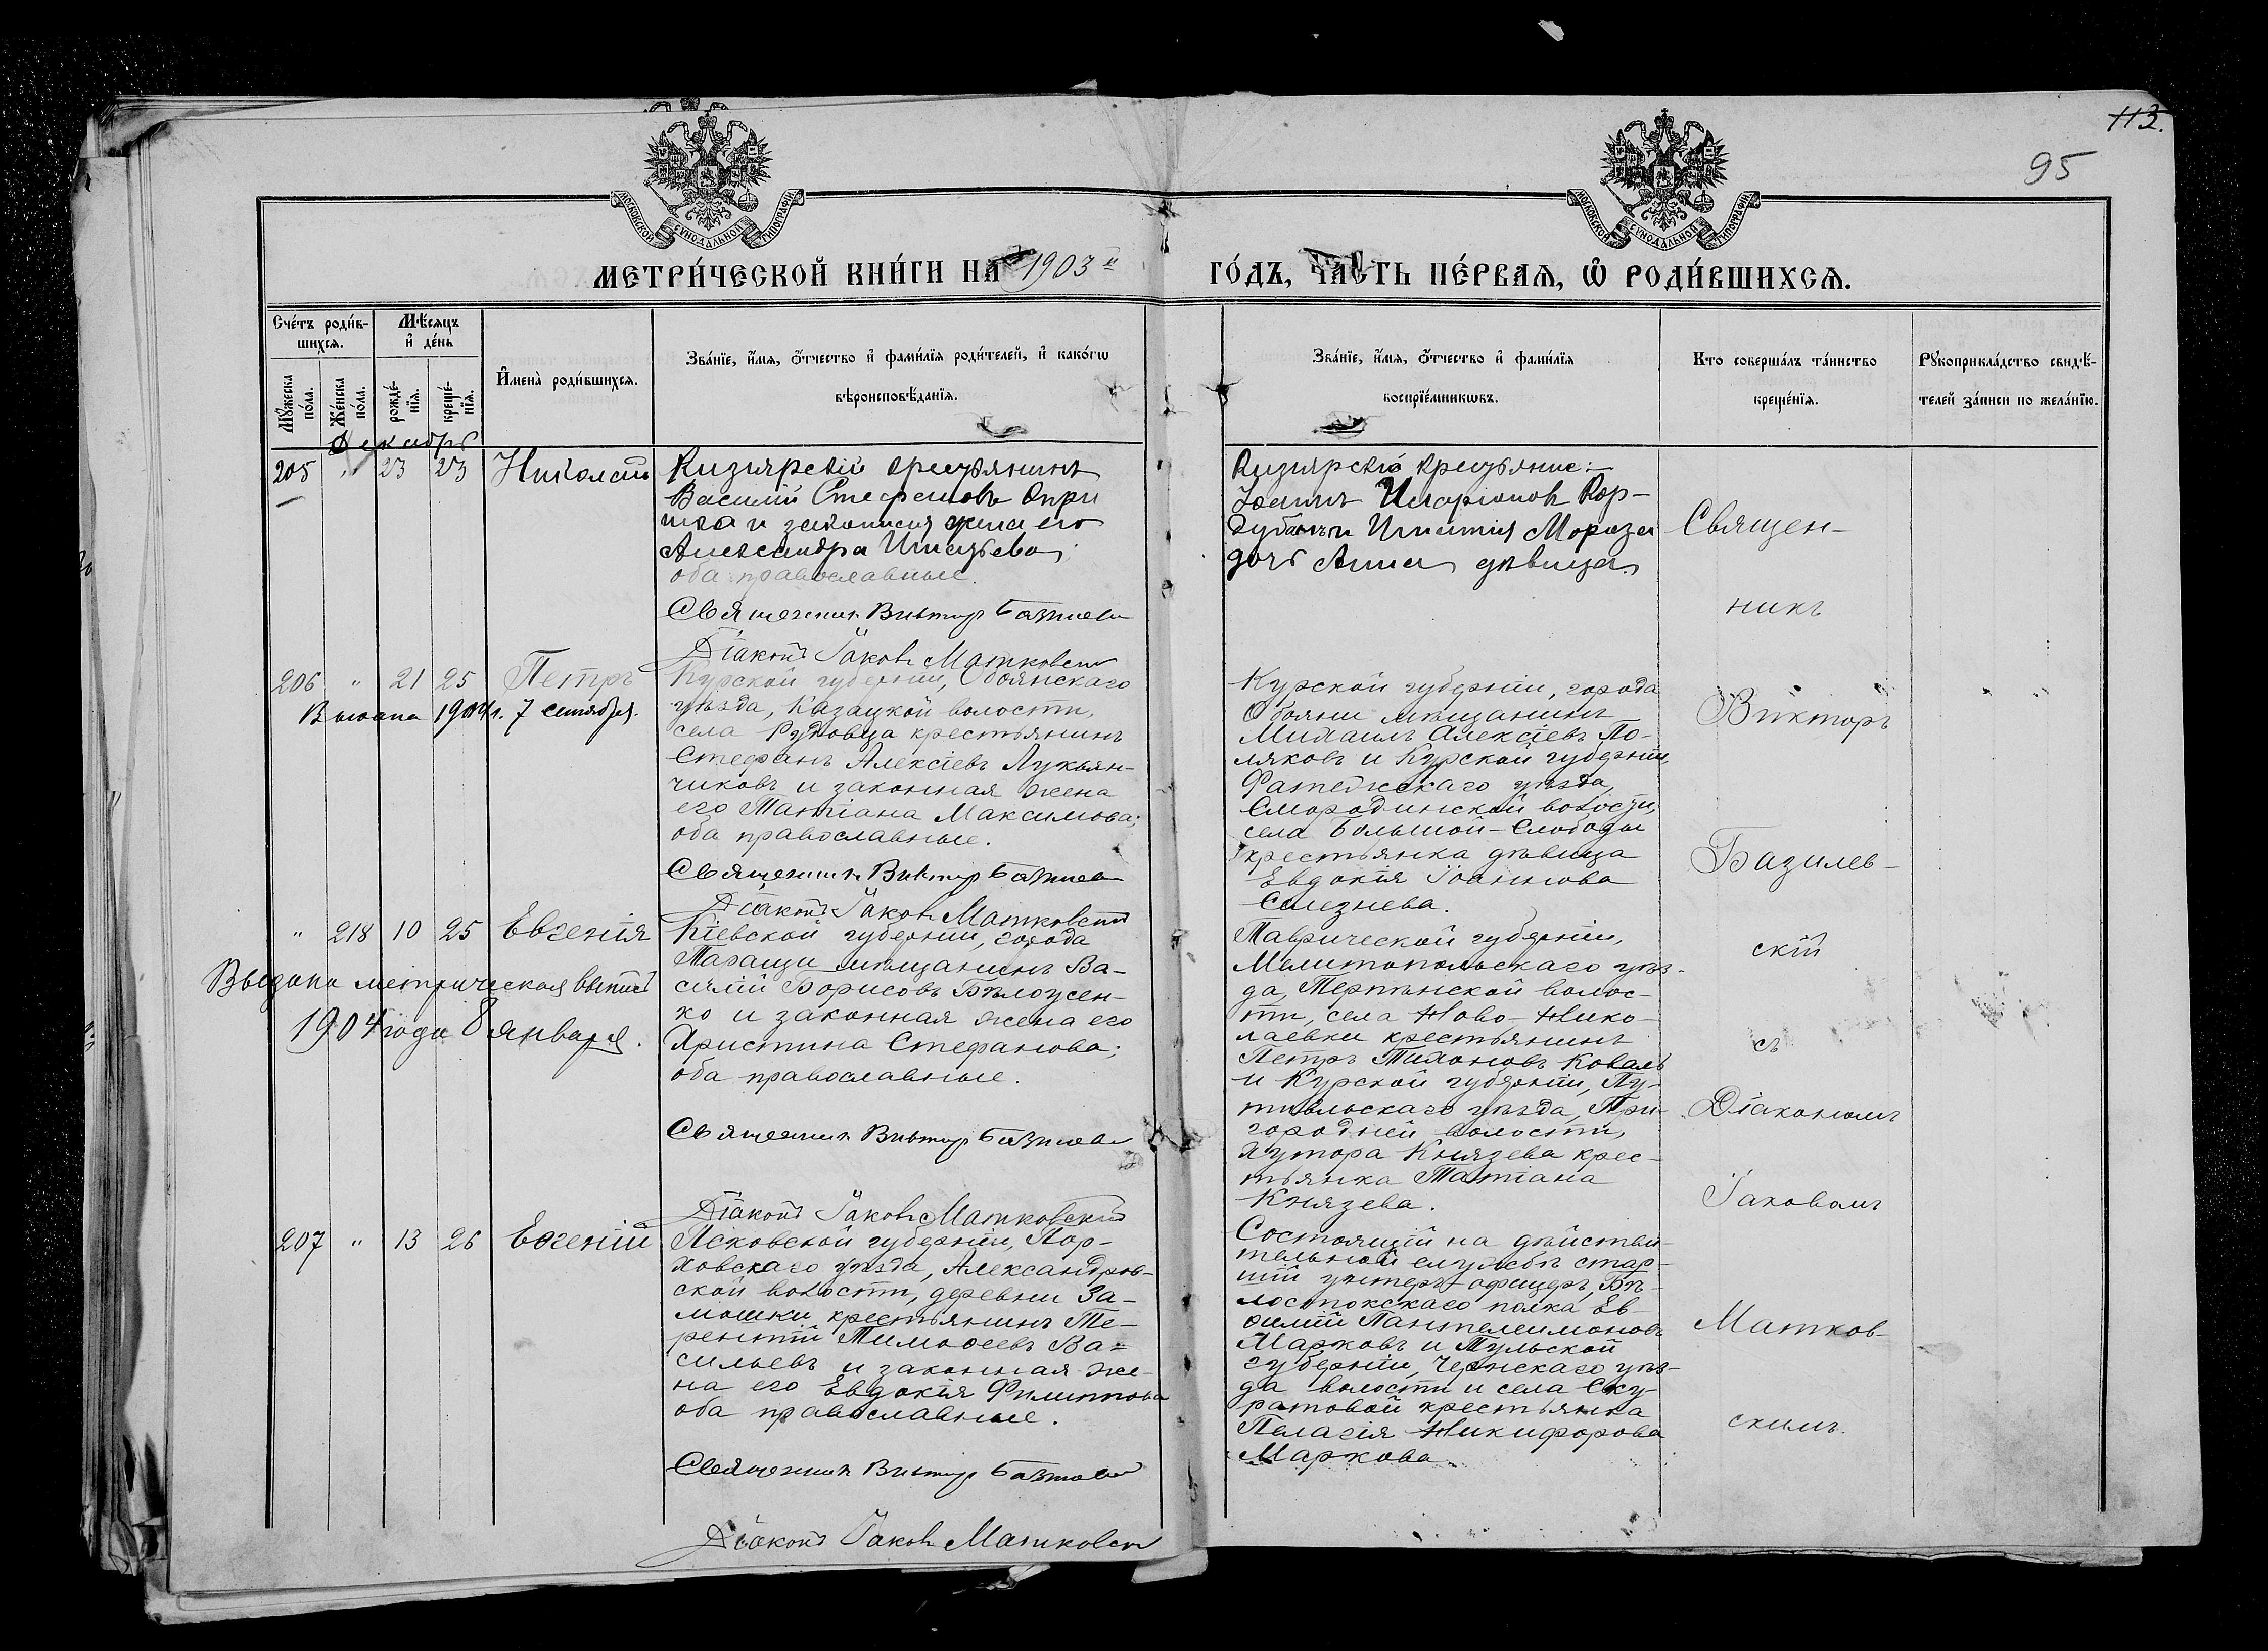 113.
95
МОСКОВСКОЙ СѴНОДАЛЬНОЙ ТИПОГРАФІИ
МОСКОВСКОЙ СѴНОДАЛЬНОЙ ТИПОГРАФІИ
МЕТРИ́ЧЕСКОЙ КНИ́ГИ НА 1903й ГО́ДЪ, ЧА́СТЬ ПЕ́РВАѦ, Ѿ РОДИ́ВШИХСѦ.
Сче́тъ роди́в-
шихсѧ.
Мѣ́сѧцъ
и҆ де́нь
Мꙋ́жеска
по́ла.
Же́нска
по́ла.
рожде́-
нїѧ.
креще́-
нїѧ.
И҆мена̀ роди́вшихсѧ.
Зва́нїе, и҆́мѧ, ѻ҆́тчество и҆ фами́лїѧ роди́телей, и҆ како́гѡ
вѣроисповѣ́данїѧ.
Зва́нїе, и҆́мѧ, ѻ҆́тчество и҆ фами́лїѧ
воспрїе́мникѡвъ.
Кто соверша́лъ та́инство
креще́нїѧ.
Рꙋкоприкла́дство свидѣ́-
телей за́писи по жела́нїю.
Декабрь
205 " 23 23 Николай
Кизиярскій крестьянинъ
Василій Стефановъ Опри
шка и законная жена его
Александра Игнатьева;
оба православные.
Священникъ Викторъ Базилев
Діаконъ Іаковъ Матковскій
Кизиярскіе крестьяне:
Іоаннъ Иларіоновъ Кор-
дубанъ и Игнатія Мороза
дочь Анна девица
206 " 21 25 Петръ
Выдана 1904 г. 7 сентября.
Курской губерніи, Обоянскаго
уѣзда, Казацкой волости,
села Рудовца крестьянинъ
Стефанъ Алексіевъ Лукьян-
чиковъ и законная жена
его Татіана Максимова;
оба православные.
Священникъ Викторъ Базилев
Діаконъ Іаковъ Матковскій
Курской губерніи, города
Обояни мѣщанинъ
Михаилъ Алексіевъ По-
ляковъ и Курской губерніи,
Фатежскаго уѣзда,
Смородинской волости,
села Большой-Слободы
крестьянка дѣвица
Евдокія Іоаннова
Селезнева.
" 218 10 25 Евгенія
Выдана метрическая выпись
1904 года 8 января.
Кіевской губерніи, города
Таращи мѣщанинъ Ва-
силій Борисовъ Бѣлоусен-
ко и законная жена его
Христина Стефанова;
оба православные.
Священникъ Викторъ Базилев
Діаконъ Іаковъ Матковскій
Таврической губерніи,
Мелитопольскаго уѣз-
да, Терпѣнской волос-
ти, села Ново-Нико-
лаевки крестьянинъ
Петръ Тихоновъ Коваль
и Курской губерніи, Пу-
тивльскаго уѣзда, При-
городней волости,
хутора Князева крес-
тьянка Татіана
Князева.
207 " 13 26 Евгеній
Псковской губерніи, Пор-
ховскаго уѣзда, Александров-
ской волости, деревни За-
мошки крестьянинъ Те-
рентій Тимоѳеевъ Ва-
сильевъ и законная же-
на его Евдокія Филиппова
оба православные.
Священникъ Викторъ Базилев
Діаконъ Іаковъ Матковскій
Состоящій на дѣйстви-
тельной службѣ стар-
шій унтеръ-офицеръ, Бѣ-
лостокскаго полка Ев-
ѳимій Пантелеимоновъ
Марковъ и Тульской
губерніи, Чернскаго уѣз-
да волости и села Ску-
ратовой крестьянка
Пелагія Никифорова
Маркова.
Священ-
никъ
Викторъ
Базилев-
скій
съ
Діакономъ
Іаковомъ
Матков-
скимъ.